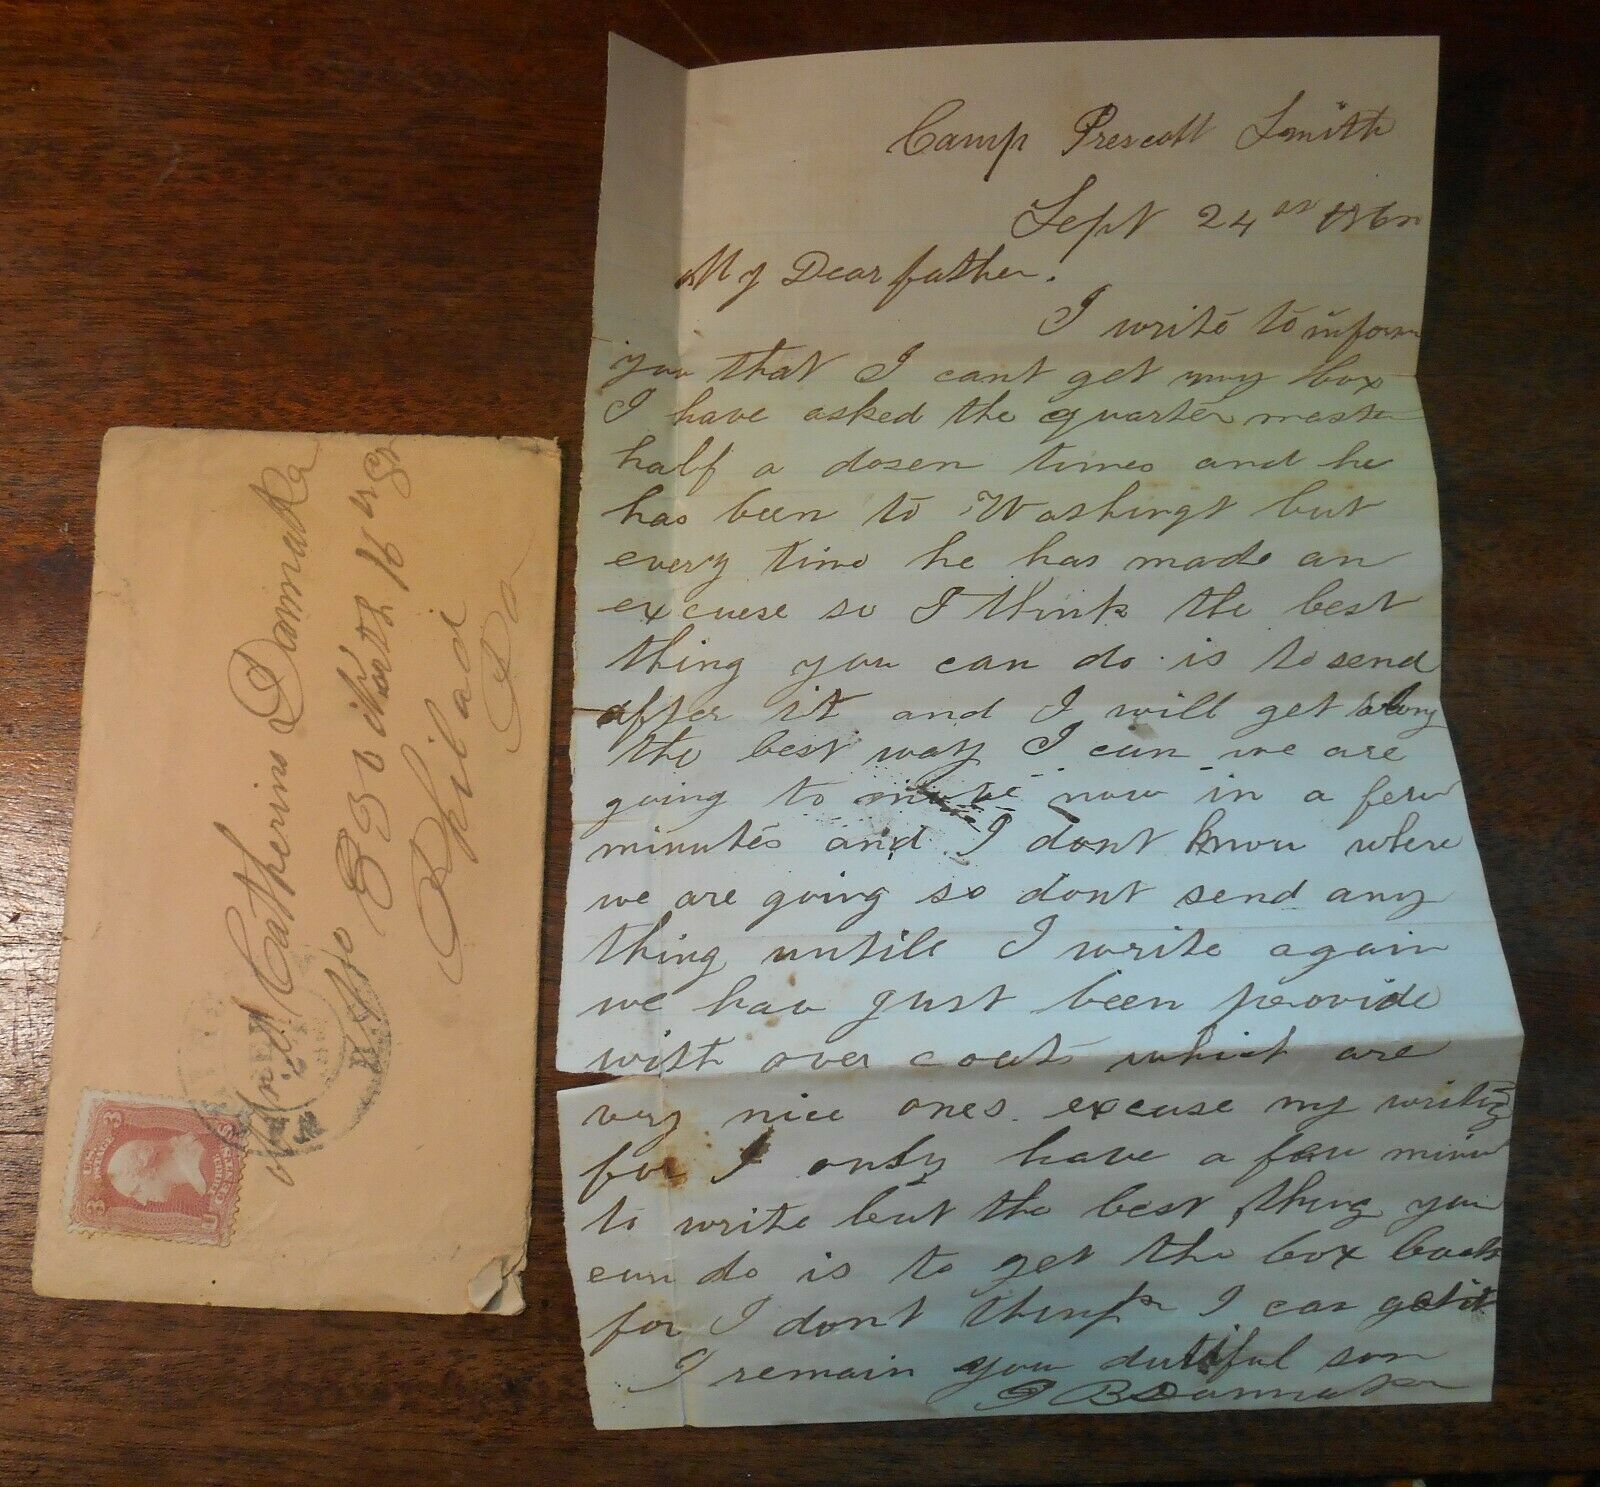 Camp Prescott Smith
Sept 24
My Dear father.
I write to inform
you that I cant get my box
I have asked the quarter master
half a dosen times and he
has been to Washingt but
every time he has made an
excuese so I think the best
thing you can do is to send
after it and I will get along
the best way I can we are
going to move now in a few
minutes and I dont know where
we are going so dont send any
thing untill I write again
we hav just been provide
with over coats which are
very nice ones excuse my writing
for I only have a few minu
to write but the best thing you
can do is to get the box back
for I dont think I can get it
I remain you dutiful son
B Dannaka
Catherine Dannaka
No 830 North 16 th St
Philad
Pa
3 3
U S